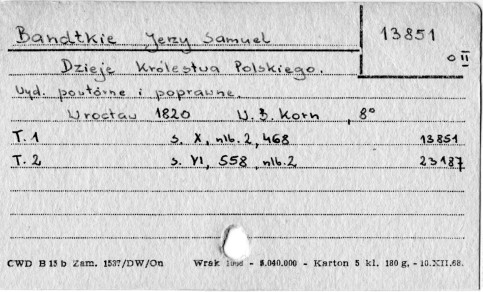 Bandtkie Jerzy Samuel 13851
o II
Dzieje Królestwa Polskiego.
Wyd. powtórne i poprawne.
Wrocław 1820 W. B. Korn, 8°
T. 1 s. X, nlb. 2, 468 13851
T. 2 s. VI, 558, nlb. 2 23187
CWD B 15 b Zam. 1537/DW/On Wrak - 5.040.000 - Karton 5 kl. 180 g, - 10.XII.68.